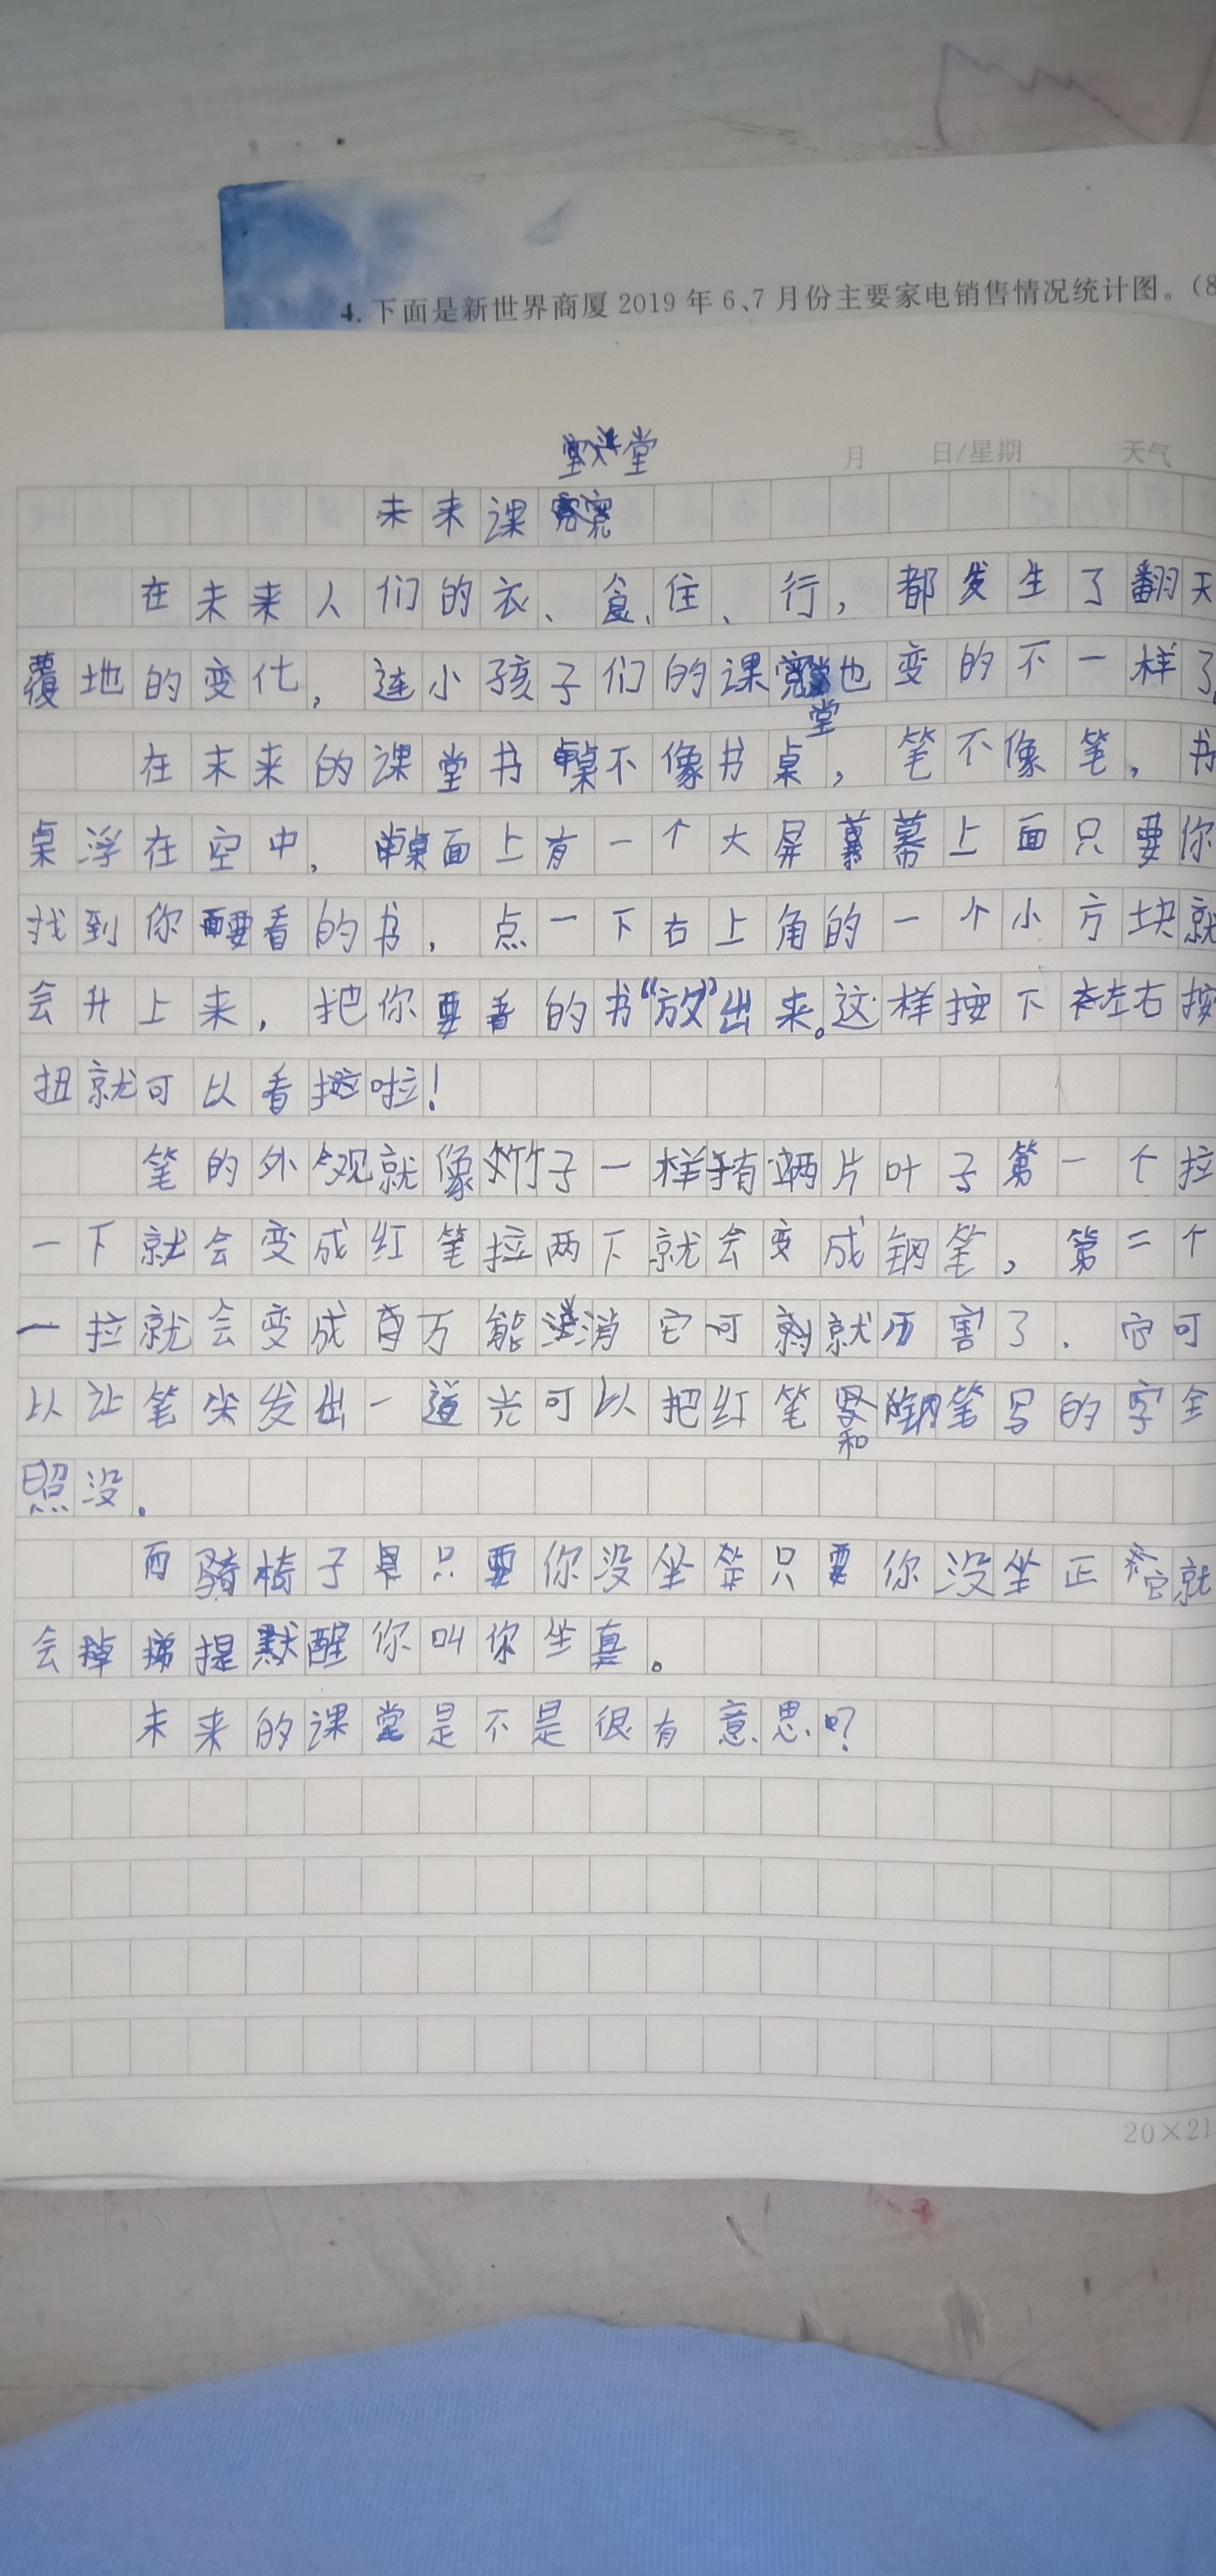 4. 下面是新世界商厦 2019 年 6、7 月份主要家电销售情况统计图。(8
堂
月 日/星期 天气
未来课
在未来人们的衣、食、住、行，都发生了翻天
覆地的变化，连小孩子们的课堂也变的不一样了。
在未来的课堂书桌不像书桌，笔不像笔，书
桌浮在空中，桌面上有一个大屏幕上面只要你
找到你要看的书，点一下右上角的一个小方块就
会升上来，把你要看的书“放”出来。这样按下左右按
扭就可以看啦！
笔的外观就像竹子一样有两片叶子第一个拉
一下就会变成红笔拉两下就会变成钢笔，第二个
一拉就会变成百万能消它可就历害了．它可
以让笔尖发出一道光可以把红笔和钢笔写的字全
照没．
而椅子只要你没坐只要你没坐正它就
会提醒你叫你坐真。
未来的课堂是不是很有意思？
20×21